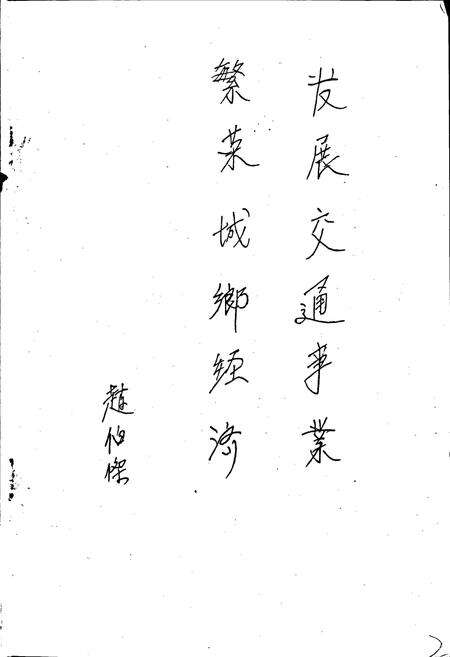 发展交通事业
繁荣城鄉经济
趙伯傑
2